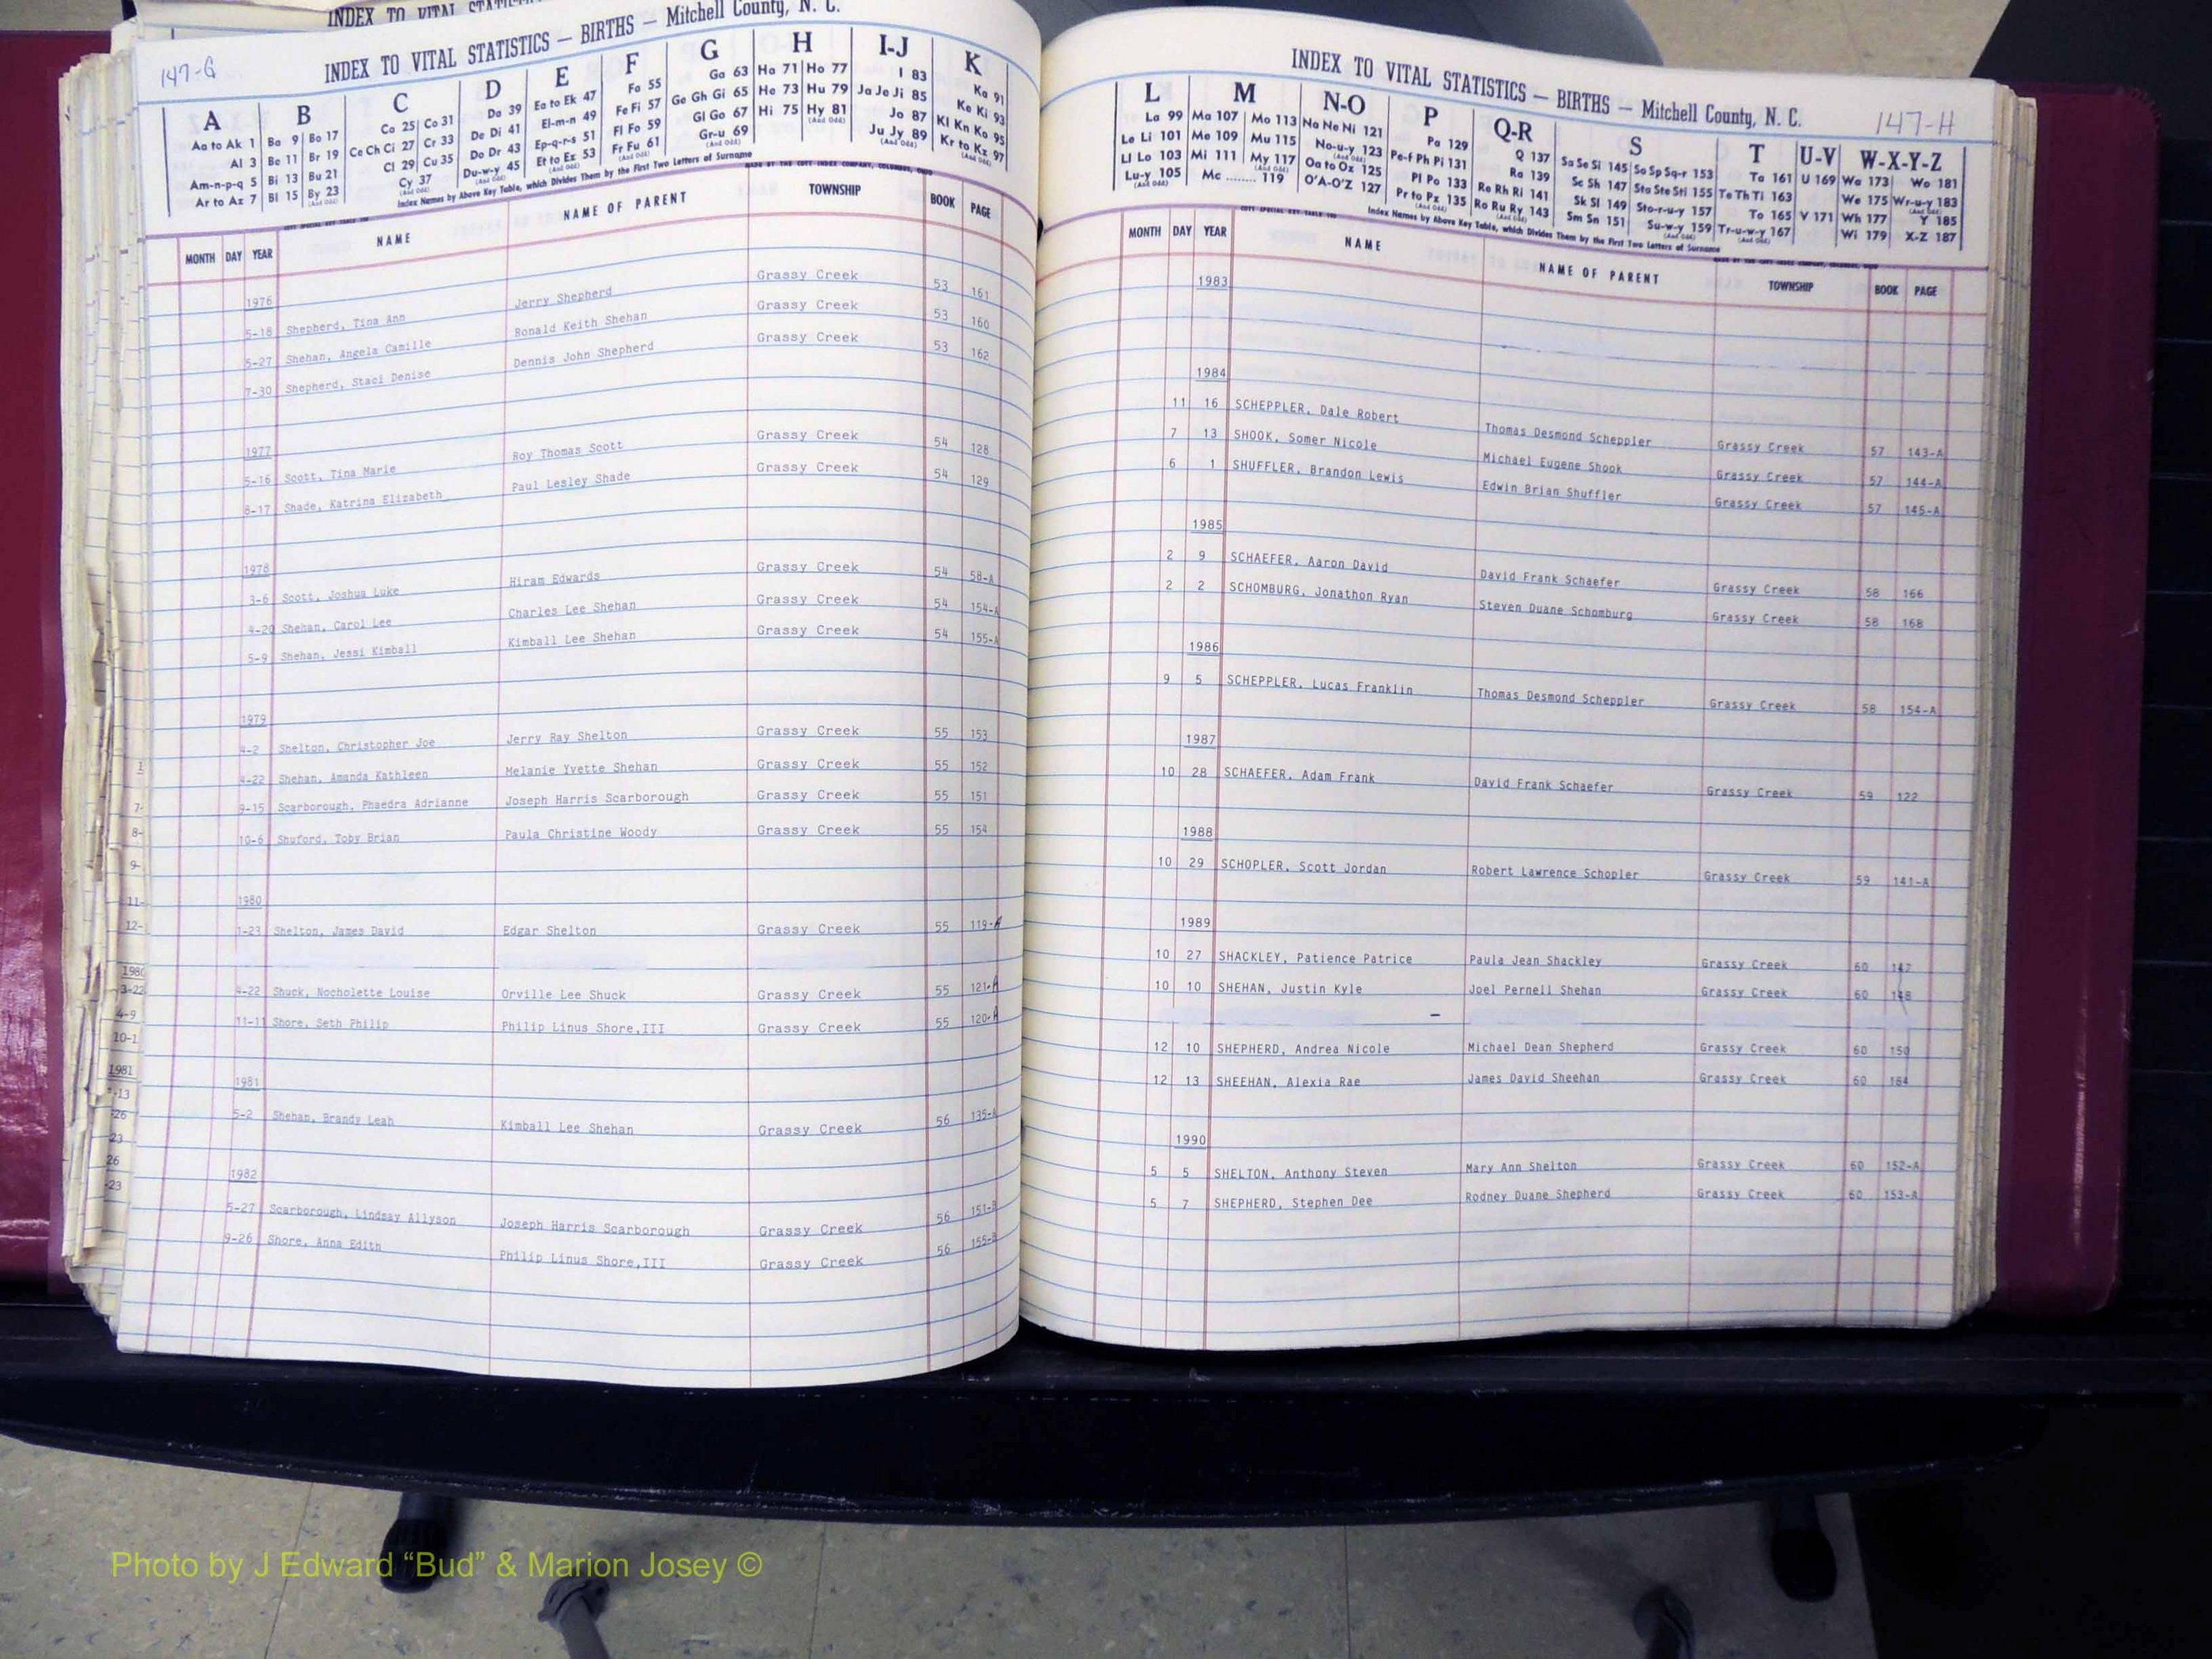 INDEX TO VITAL
INDEX TO VITAL STATISTICS — BIRTHS — Mitchell County, N. C.
147-G
A B C D E F G H I-J K
Aa to Ak 1 Ba 9 Bo 17 Ca 25 Co 31 Da 39 Ea to Ek 47 Fa 55 Ga 63 Ha 71 Ho 77 I 83 Ka 91
Al 3 Be 11 Br 19 Ce Ch Ci 27 Cr 33 De Di 41 El-m-n 49 Fe Fi 57 Ge Gh Gi 65 He 73 Hu 79 Ja Je Ji 85 Ke Ki 93
Am-n-p-q 5 Bi 13 Bu 21 Cl 29 Cu 35 Do Dr 43 Ep-q-r-s 51 Fl Fo 59 Gl Go 67 Hi 75 Hy 81 Jo 87 Kl Kn Ko 95
Ar to Az 7 Bl 15 By 23 Cy 37 Du-w-y 45 Et to Ez 53 Fr Fu 61 Gr-u 69 Ju Jy 89 Kr to Kz 97
Index Names by Above Key Table, which Divides Them by the First Two Letters of Surname
MONTH DAY YEAR NAME NAME OF PARENT TOWNSHIP BOOK PAGE
1976
5-18 Shepherd, Tina Ann Jerry Shepherd Grassy Creek 53 161
5-27 Shehan, Angela Camille Ronald Keith Shehan Grassy Creek 53 160
7-30 Shepherd, Staci Denise Dennis John Shepherd Grassy Creek 53 162
1977
5-16 Scott, Tina Marie Roy Thomas Scott Grassy Creek 54 128
8-17 Shade, Katrina Elizabeth Paul Lesley Shade Grassy Creek 54 129
1978
3-6 Scott, Joshua Luke Hiram Edwards Grassy Creek 54 58-A
4-20 Shehan, Carol Lee Charles Lee Shehan Grassy Creek 54 154-A
5-9 Shehan, Jessi Kimball Kimball Lee Shehan Grassy Creek 54 155-A
1979
4-2 Shelton, Christopher Joe Jerry Ray Shelton Grassy Creek 55 153
4-22 Shehan, Amanda Kathleen Melanie Yvette Shehan Grassy Creek 55 152
9-15 Scarborough, Phaedra Adrianne Joseph Harris Scarborough Grassy Creek 55 151
10-6 Shuford, Toby Brian Paula Christine Woody Grassy Creek 55 154
1980
1-23 Shelton, James David Edgar Shelton Grassy Creek 55 119-A
4-22 Shuck, Nocholette Louise Orville Lee Shuck Grassy Creek 55 121-A
11-11 Shore, Seth Philip Philip Linus Shore,III Grassy Creek 55 120-A
1981
5-2 Shehan, Brandy Leah Kimball Lee Shehan Grassy Creek 56 135-A
1982
5-27 Scarborough, Lindsay Allyson Joseph Harris Scarborough Grassy Creek 56 151-B
9-26 Shore, Anna Edith Philip Linus Shore,III Grassy Creek 56 155-B
1
7-
8-
9-
11-
12-
1980
3-22
4-9
10-1
1981
-13
-26
23
26
-23
INDEX TO VITAL STATISTICS — BIRTHS — Mitchell County, N. C.
147-H
L M N-O P Q-R S T U-V W-X-Y-Z
La 99 Ma 107 Mo 113 Na Ne Ni 121 Pa 129 Q 137 Sa Se Si 145 So Sp Sq-r 153 Ta 161 U 169 Wa 173 Wo 181
Le Li 101 Me 109 Mu 115 No-u-y 123 Pe-f Ph Pi 131 Ra 139 Sc Sh 147 Sta Ste Sti 155 Te Th Ti 163 We 175 Wr-u-y 183
Ll Lo 103 Mi 111 My 117 Oa to Oz 125 Pl Po 133 Re Rh Ri 141 Sk Sl 149 Sto-r-u-y 157 To 165 V 171 Wh 177 Y 185
Lu-y 105 Mc ........ 119 O'A-O'Z 127 Pr to Pz 135 Ro Ru Ry 143 Sm Sn 151 Su-w-y 159 Tr-u-w-y 167 Wi 179 X-Z 187
Index Names by Above Key Table, which Divides Them by the First Two Letters of Surname
MONTH DAY YEAR NAME NAME OF PARENT TOWNSHIP BOOK PAGE
1983
1984
11 16 SCHEPPLER, Dale Robert Thomas Desmond Scheppler Grassy Creek 57 143-A
7 13 SHOOK, Somer Nicole Michael Eugene Shook Grassy Creek 57 144-A
6 1 SHUFFLER, Brandon Lewis Edwin Brian Shuffler Grassy Creek 57 145-A
1985
2 9 SCHAEFER, Aaron David David Frank Schaefer Grassy Creek 58 166
2 2 SCHOMBURG, Jonathon Ryan Steven Duane Schomburg Grassy Creek 58 168
1986
9 5 SCHEPPLER, Lucas Franklin Thomas Desmond Scheppler Grassy Creek 58 154-A
1987
10 28 SCHAEFER, Adam Frank David Frank Schaefer Grassy Creek 59 122
1988
10 29 SCHOPLER, Scott Jordan Robert Lawrence Schopler Grassy Creek 59 141-A
1989
10 27 SHACKLEY, Patience Patrice Paula Jean Shackley Grassy Creek 60 147
10 10 SHEHAN, Justin Kyle Joel Pernell Shehan Grassy Creek 60 148
12 10 SHEPHERD, Andrea Nicole Michael Dean Shepherd Grassy Creek 60 150
12 13 SHEEHAN, Alexia Rae James David Sheehan Grassy Creek 60 184
1990
5 5 SHELTON, Anthony Steven Mary Ann Shelton Grassy Creek 60 152-A
5 7 SHEPHERD, Stephen Dee Rodney Duane Shepherd Grassy Creek 60 153-A
Photo by J Edward “Bud” & Marion Josey ©